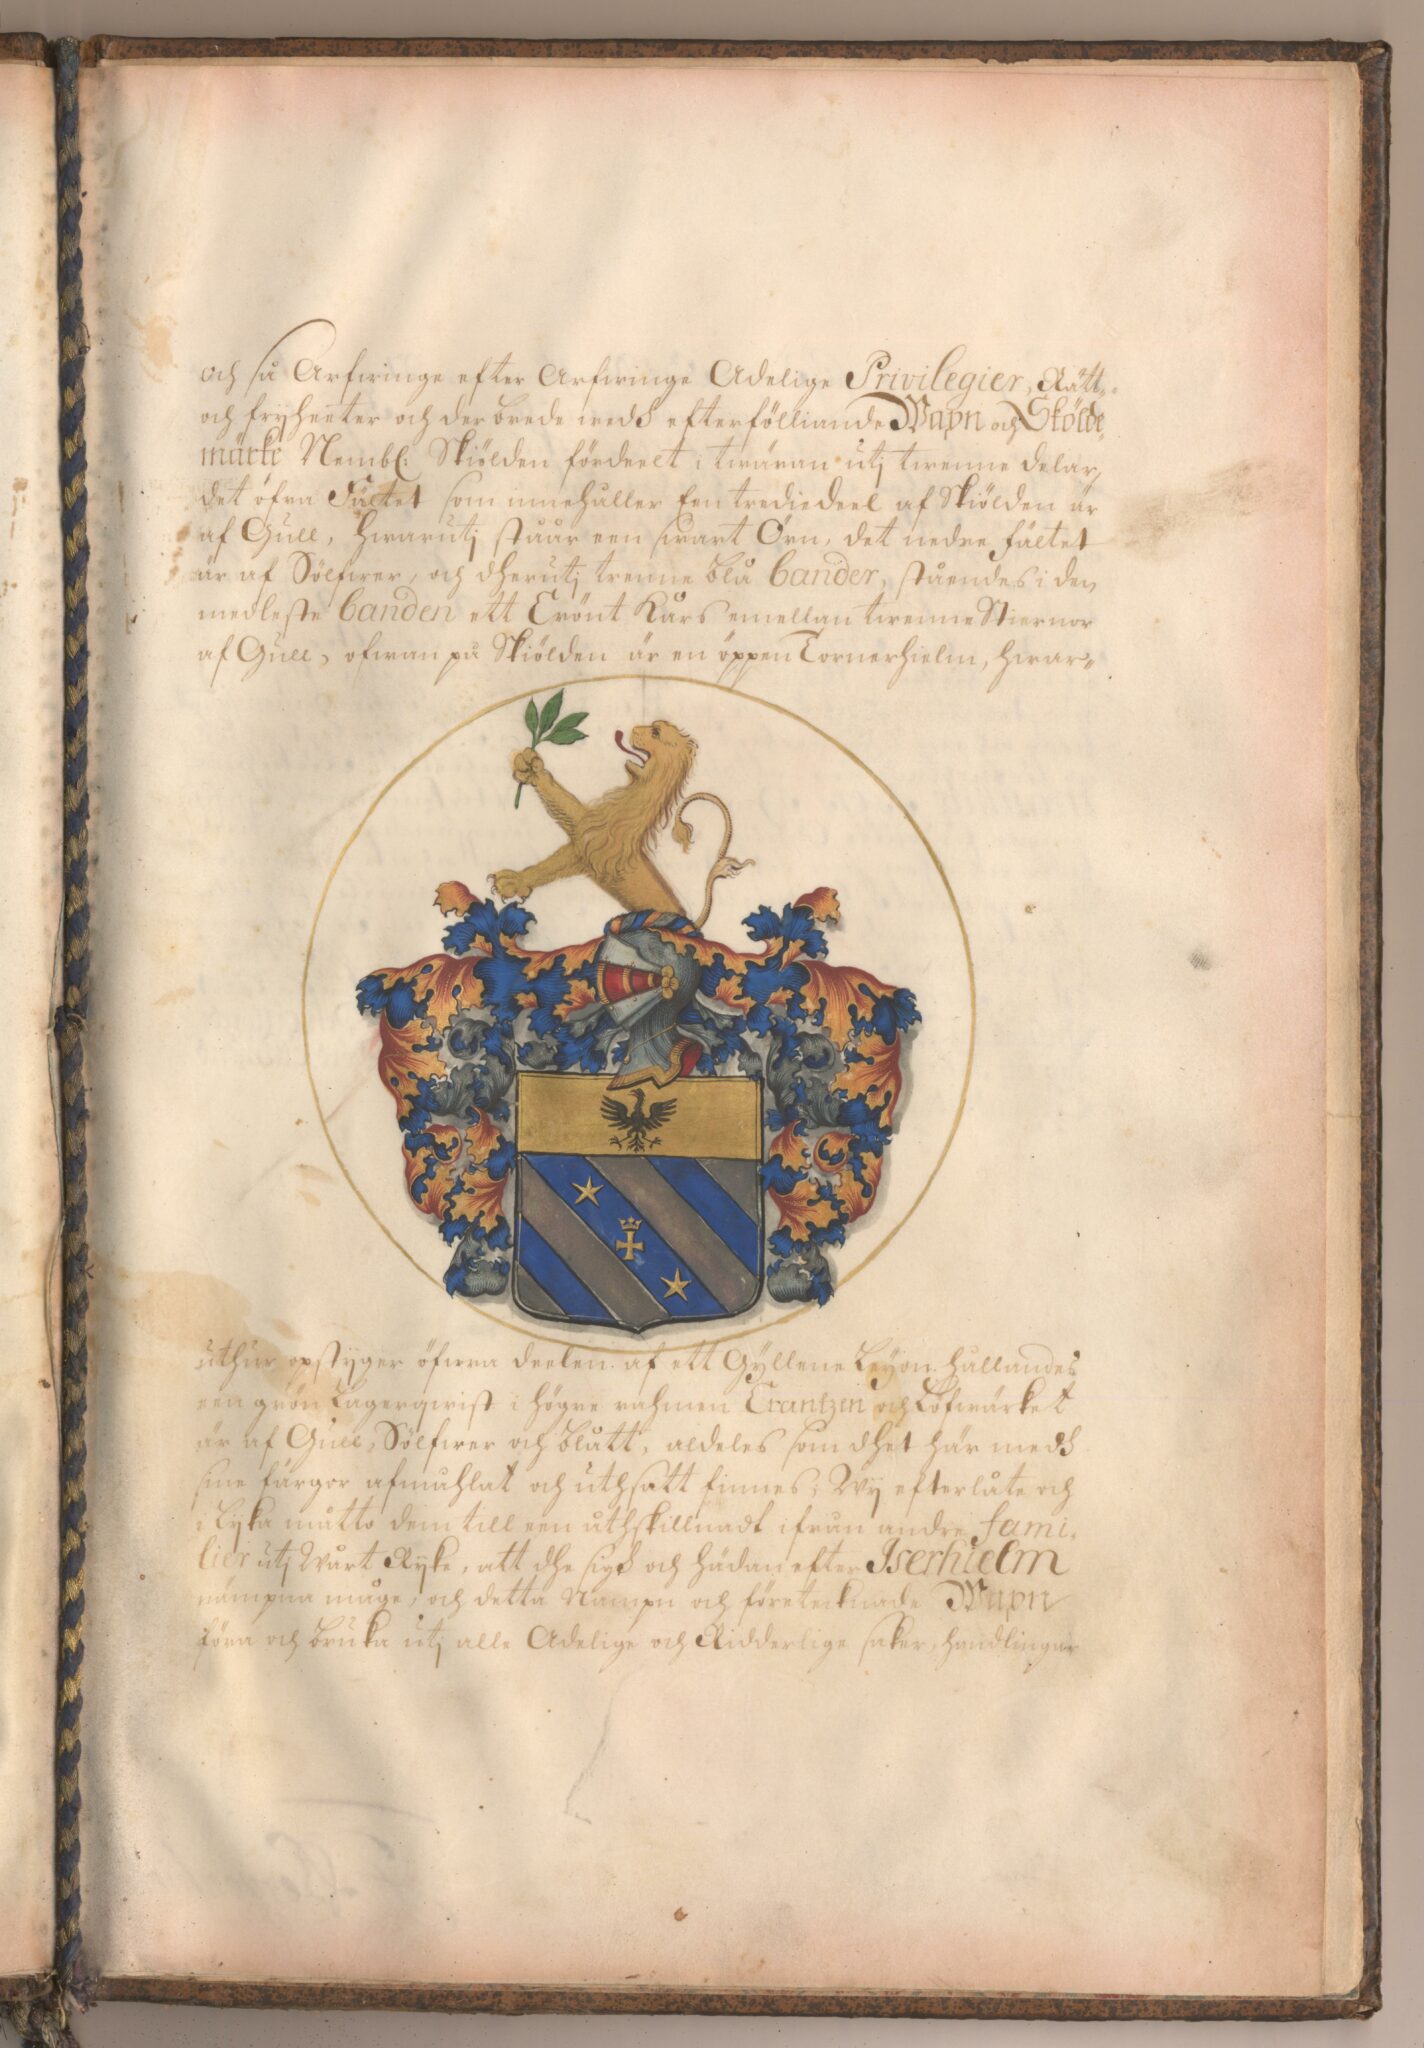 och så Arfwinge efter Arfwinge Adelige Privilegier, Rätt-
och fryheeter och der brede medh efterfölliande Wapn och Skölde-
märke Nembl: Skiölden fördeelt i twäran utj twenne delar,
det öfra Fältet som innehåller een trediedeel af Skiölden är
af Gull, hwarutj står een swart Örn, det nedre fältet
är af Sölfwer, och dherutj trenne blå bander, ståendes i den
medleste banden ett Crönt Kårs emellan twenne Stiernor
af Gull, ofwan på Skiölden är en öppen Tornerhielm, hwar-
uthur opstyger öfwra deelen af ett Gyllene Leyon hållandes
een grön Lagerqwist i högre rahmen Crantzen och Löfwärket
är af Gull, Sölfwer och blått, aldeles som dhet här medh
sine färgor afmåhlat och uthsatt finnes; Wij efterlåte och
i Lyka måtto dem till een uthskillnadt ifrån andre fami-
lier utj Wårt Ryke, att dhe sigh och hädan efter Iserhielm
nämpna måge, och detta Nampn och företecknade Wapn
föra och bruka utj alle Adelige och Ridderlige saker, handlingar